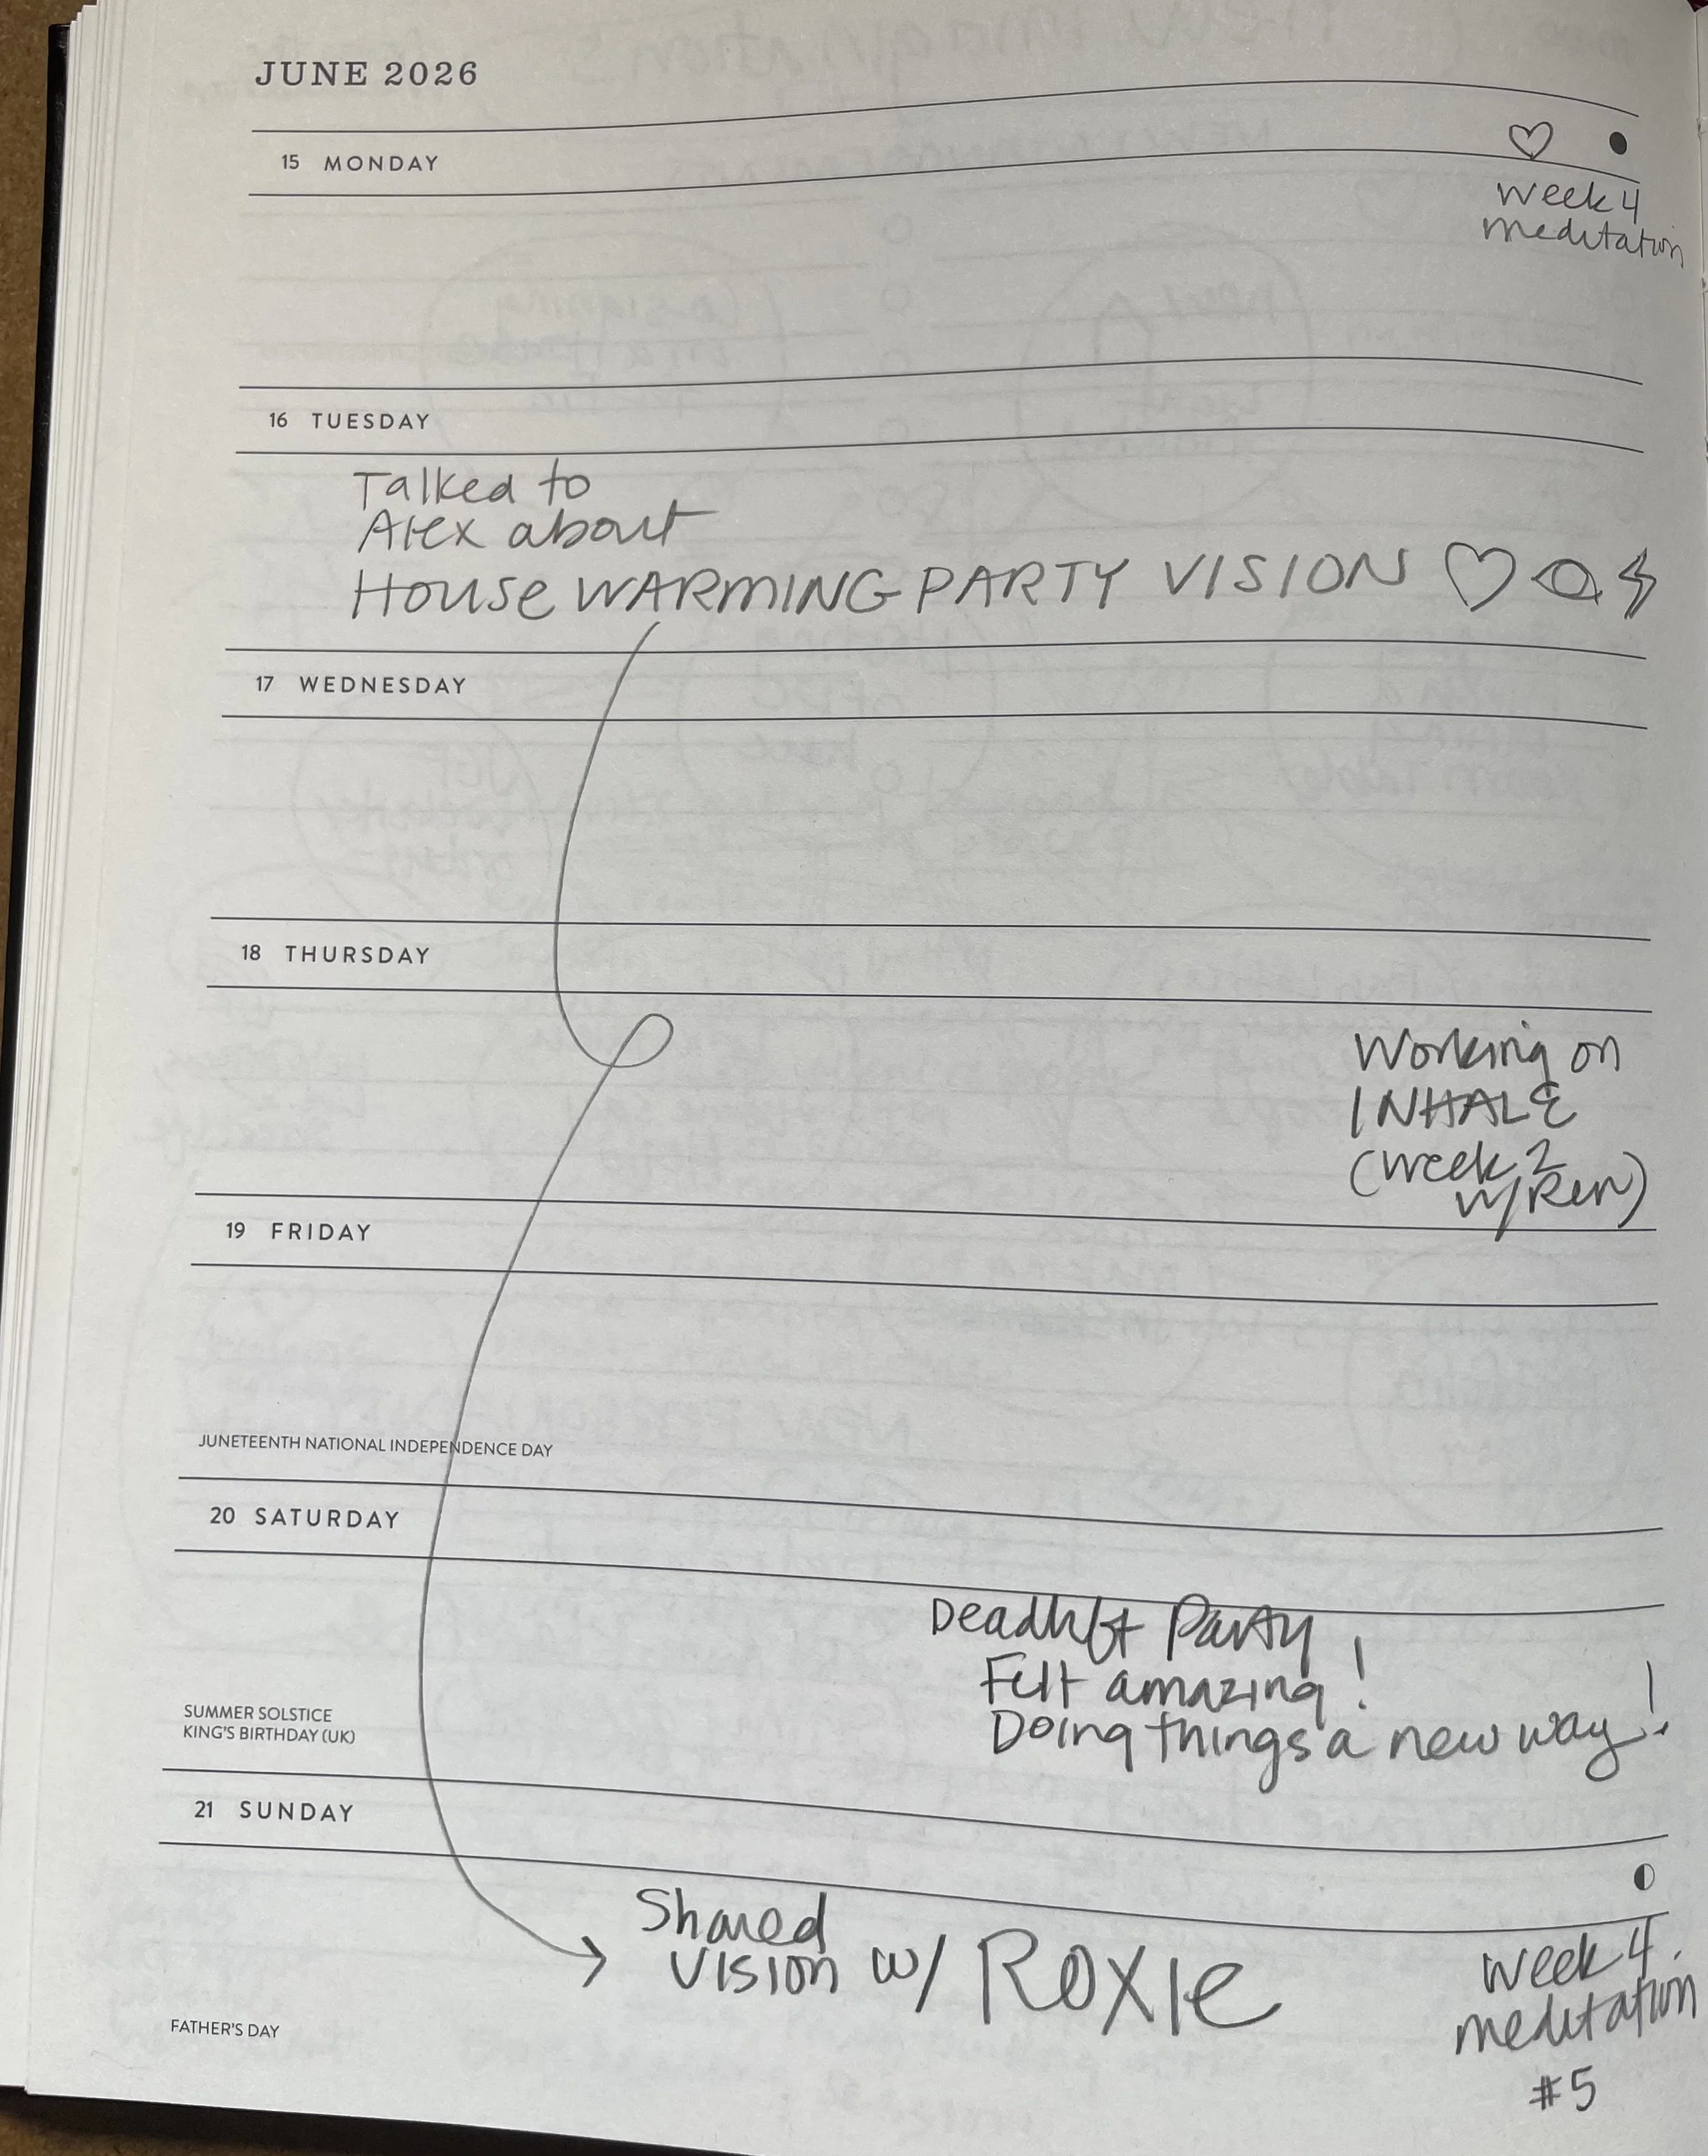 JUNE 2026
15 MONDAY
week 4
meditation
16 TUESDAY
Talked to
Alex about
House WARMING PARTY VISION
17 WEDNESDAY
18 THURSDAY
Working on
INHALE
(week 2
w/Ren)
19 FRIDAY
JUNETEENTH NATIONAL INDEPENDENCE DAY
20 SATURDAY
Deadlift Party
Felt amazing!
Doing things a new way!
SUMMER SOLSTICE
KING'S BIRTHDAY (UK)
21 SUNDAY
Shared
Vision w/ Roxie
week 4
meditation
#5
FATHER'S DAY